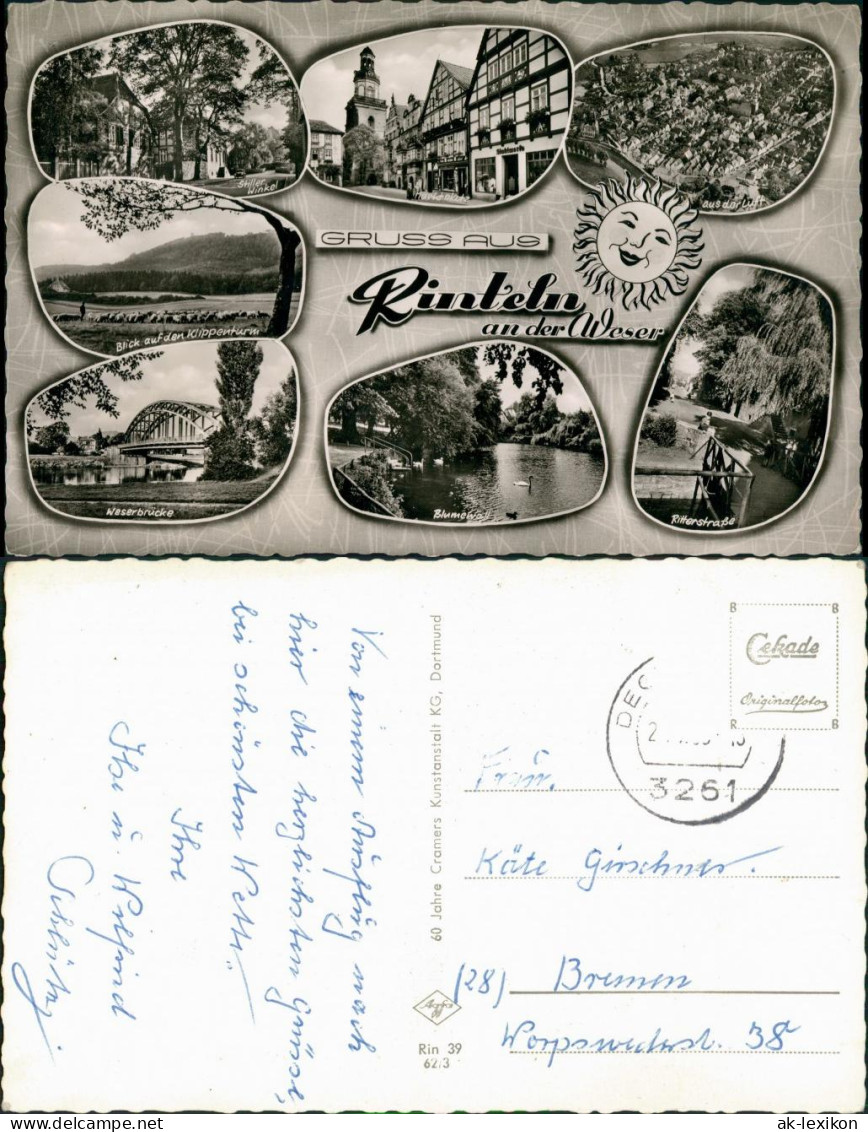 Stiller
Winkel
aus der Luft
GRUSS AUS
Rinteln
an der Weser
Blick auf den Klippenturm
Weserbrücke
Blumewall
Ritterstraße
Von einem Ausflug nach
hier die herzlichsten Grüsse
bei schönsten Wetter.
Ihre
Ihr u. Wilfried
60 Jahre Cramers Kunstanstalt KG, Dortmund
Agfa
Rin 39
62/3
B B
Cekade
Originalfoto
R B
3261
Frau
Käte Girschner.
(28) Bremen
Worpswederst. 38
www.ansichtskarten-lexikon.de
ak-lexikon